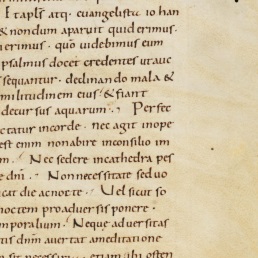 & apl͞s atq; euangelista io han
& nondum aparuit quid erimus.
erimus. quo uidebimus eum
psalmus docet credentes utauc
sequantur. declinando mala &
militudinem eius & fiant
decursus aquarum. Perfec
ectatur incorde. nec agit inope
est enim nonabire inconsilio im
m. Nec sedere incathedra pes
e dn͞i. Non necessitate sed uo
cat die ac nocte. Uel sicut so
noctem pro aduersis ponere.
emporalium. Neque aduersitas
us dnm auertat ameditatione
sit necessum etiam ibi osten